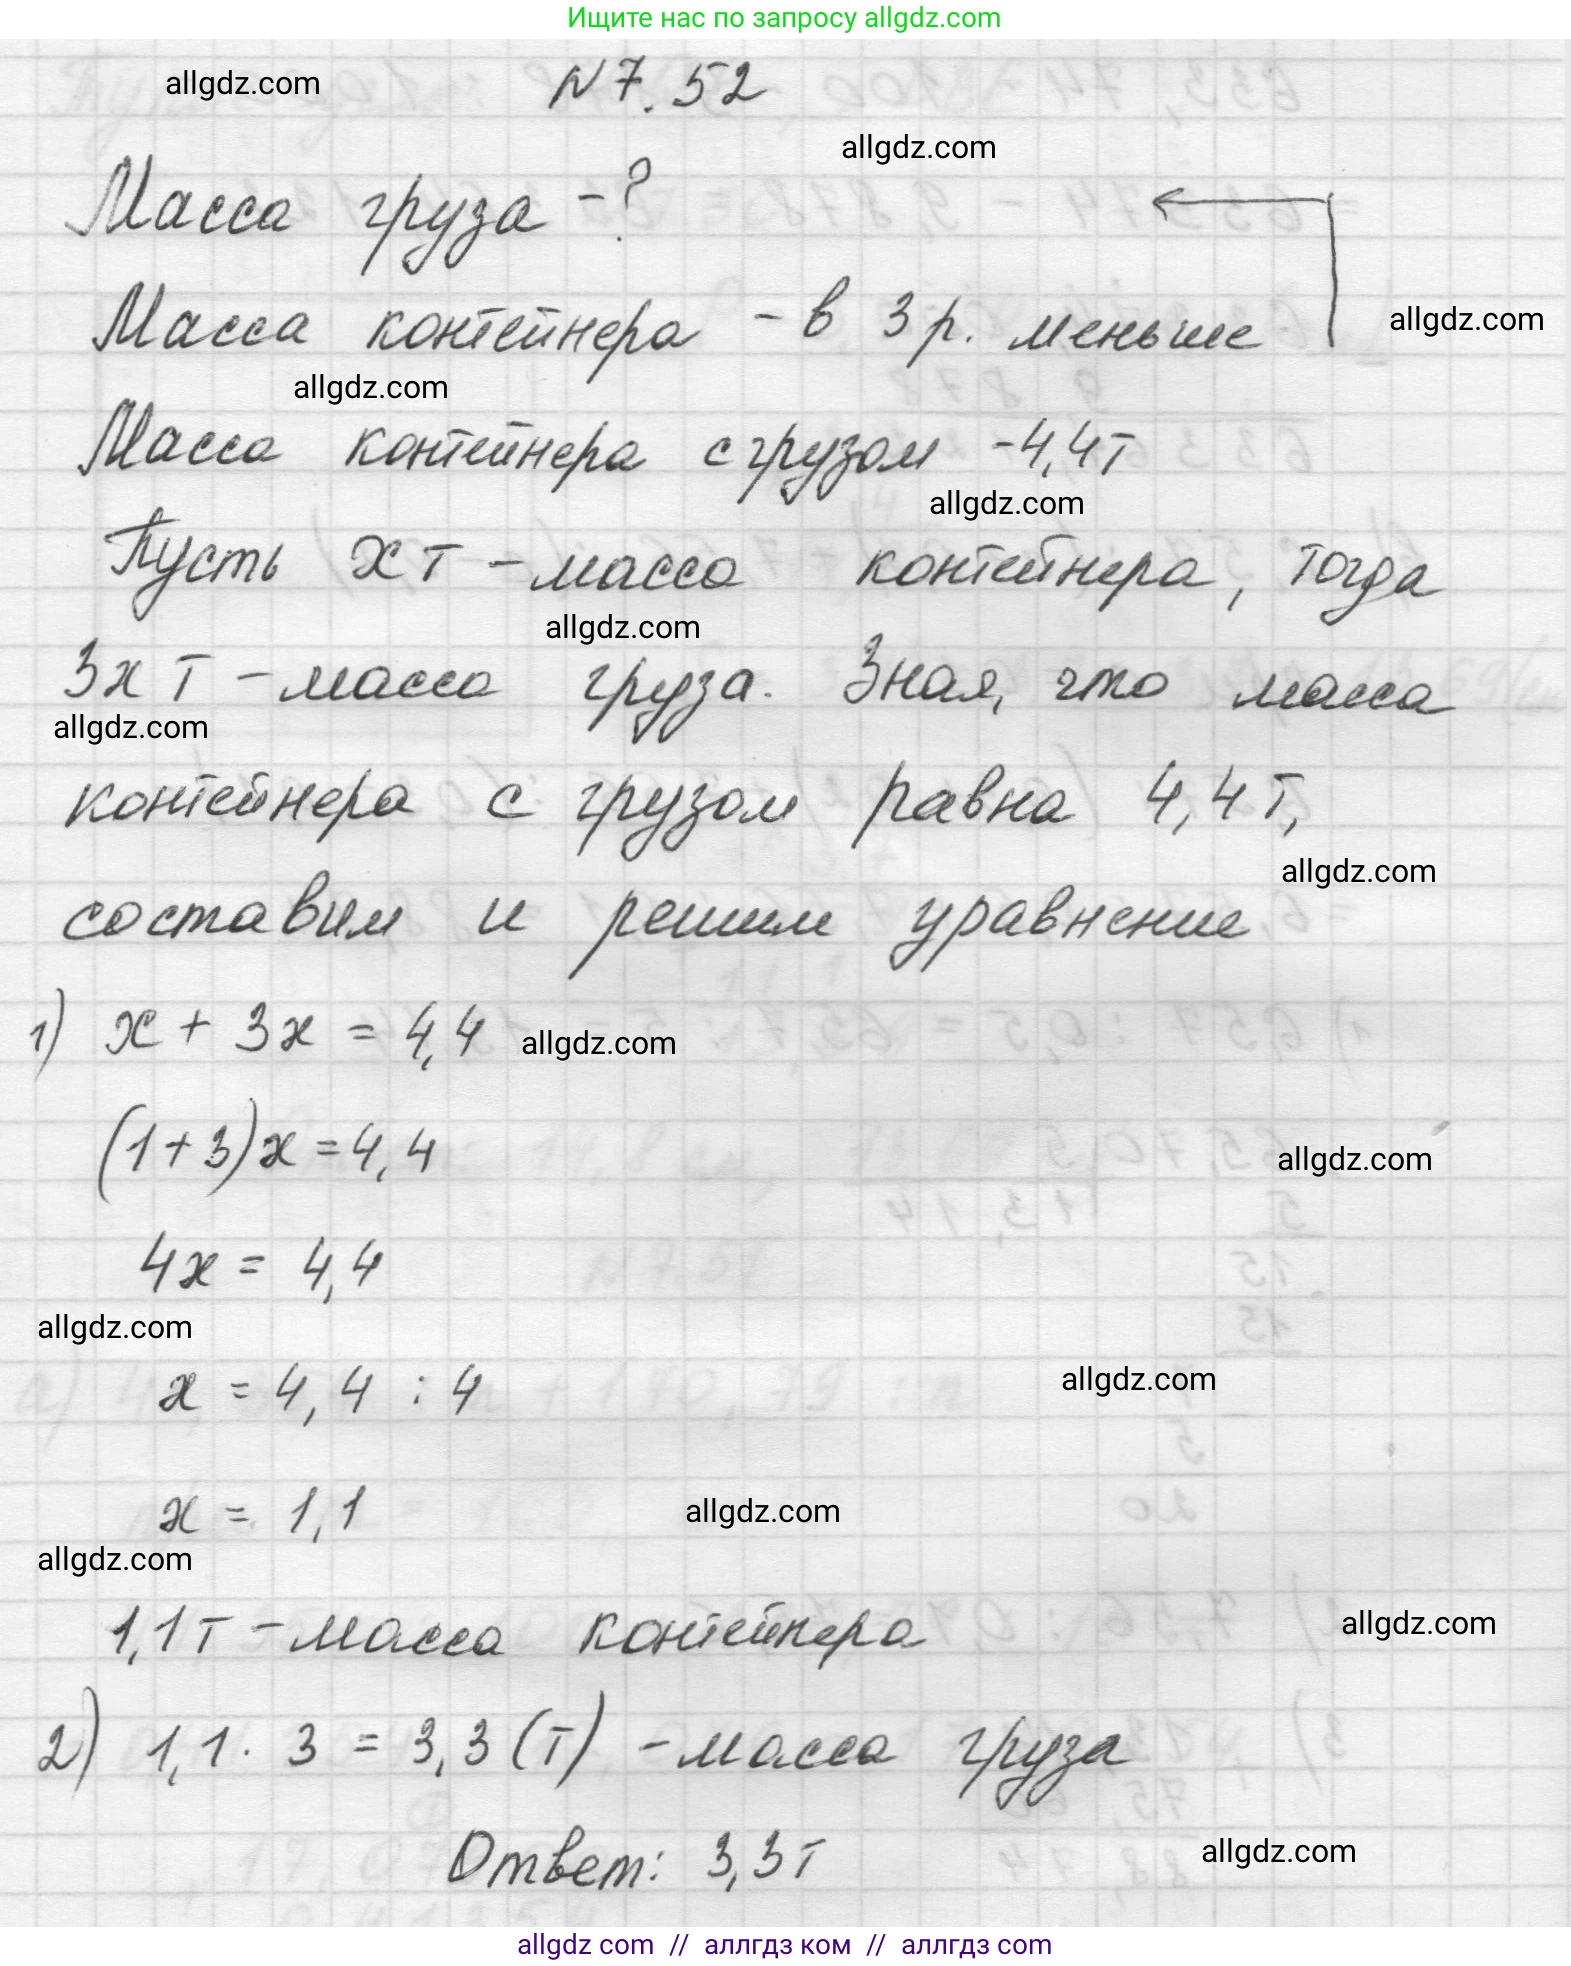 Ищите нас по запросу allgdz.com
allgdz.com
N 7.52
allgdz.com
Масса груза - ?
Масса контейнера - в 3 р. меньше
allgdz.com
allgdz.com
Масса контейнера с грузом - 4,4 т
allgdz.com
Пусть x т - масса контейнера, тогда
allgdz.com
3x т - масса груза. Зная, что масса
allgdz.com
контейнера с грузом равна 4,4 т,
allgdz.com
составим и решим уравнение
1) x + 3x = 4,4
allgdz.com
(1+3)x = 4,4
allgdz.com
4x = 4,4
allgdz.com
x = 4,4 : 4
allgdz.com
x = 1,1
allgdz.com
allgdz.com
1,1 т - масса контейнера
allgdz.com
2) 1,1 · 3 = 3,3 (т) - масса груза
Ответ: 3,3 т
allgdz.com
allgdz com // аллгдз ком // аллгдз com